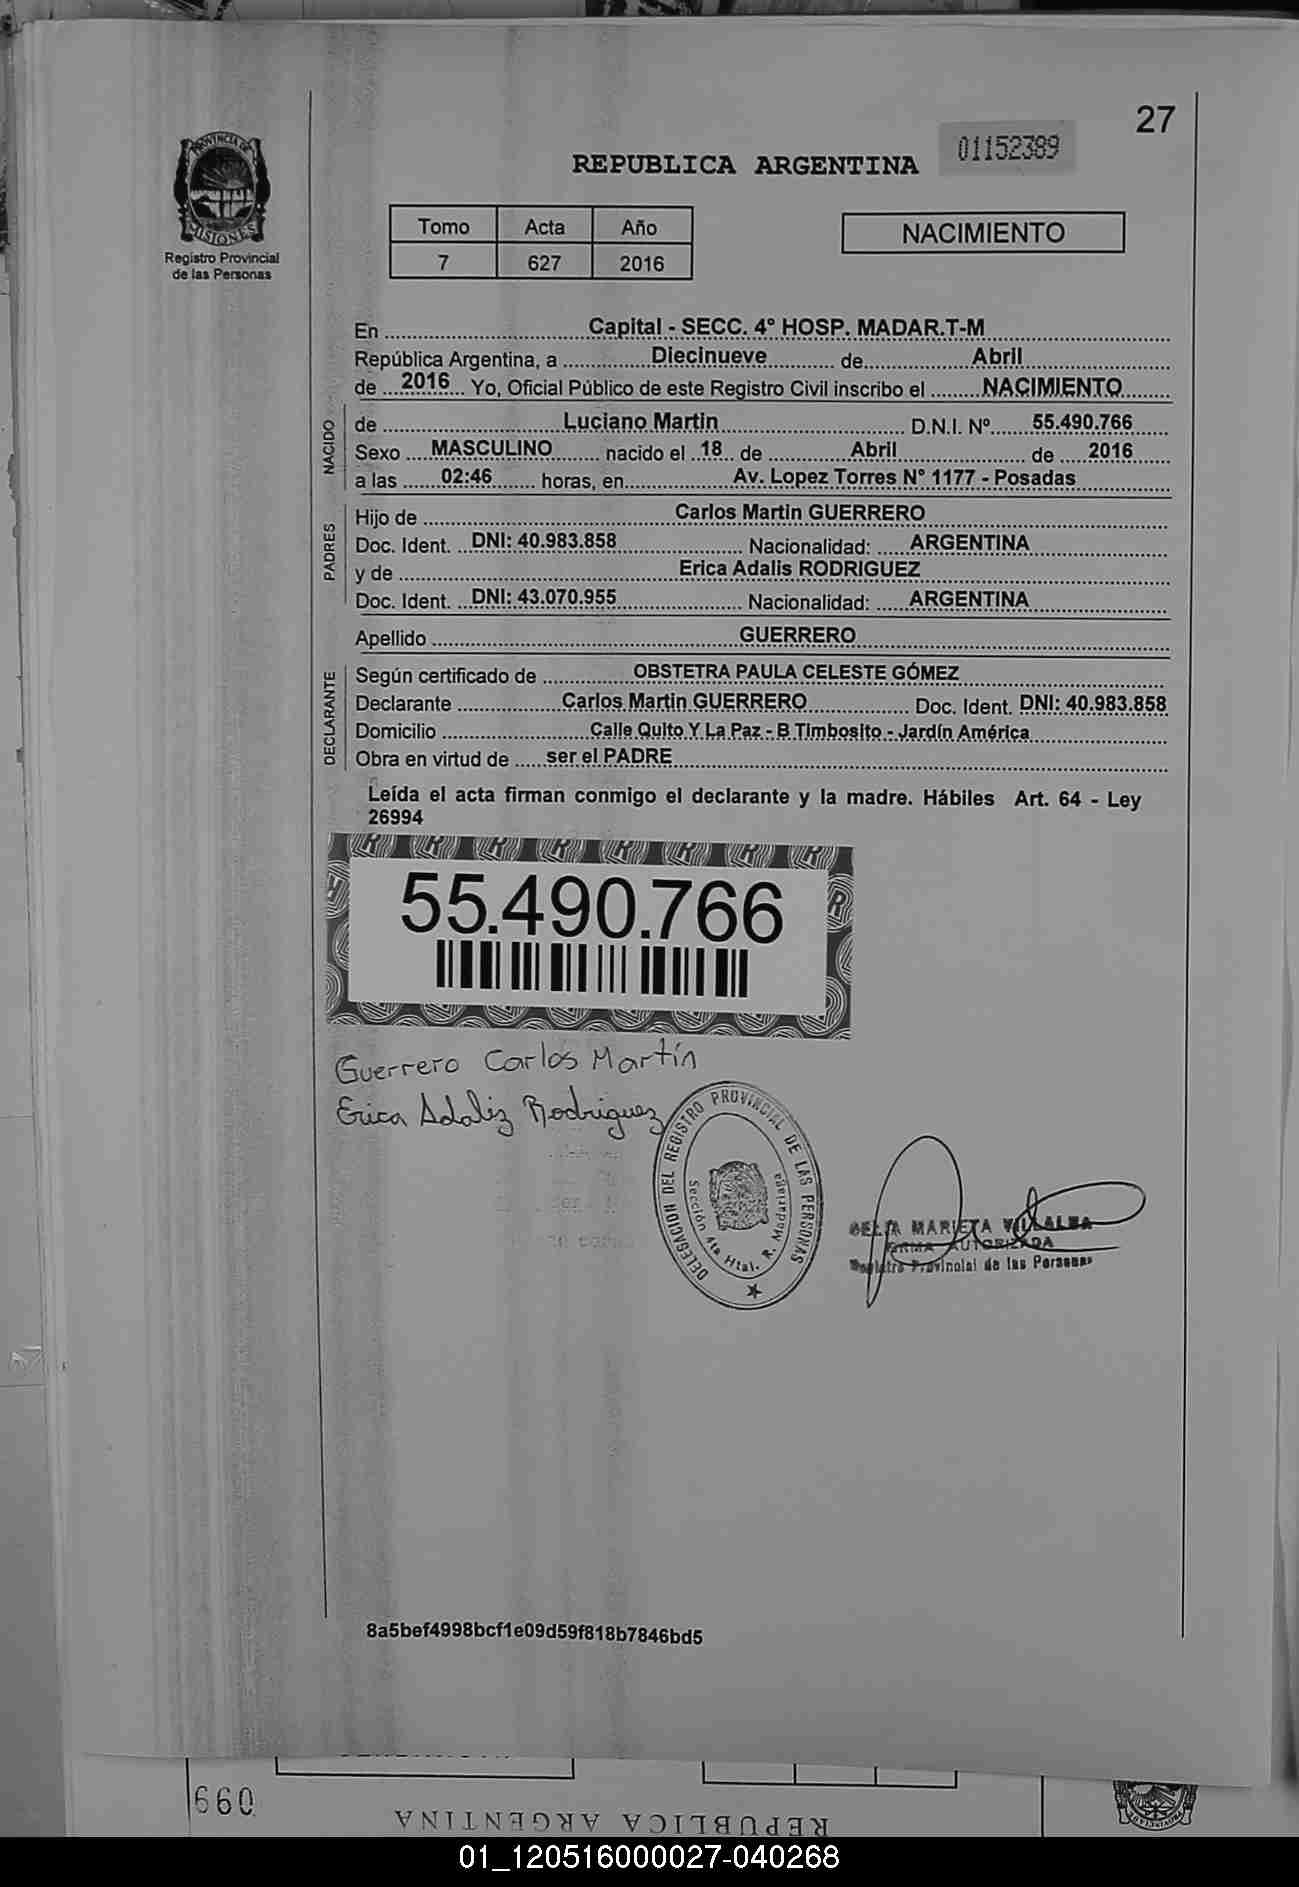 27
01152389
REPUBLICA ARGENTINA
PROVINCIA DE
MISIONES
Registro Provincial
de las Personas
Tomo Acta Año
7 627 2016
NACIMIENTO
En Capital - SECC. 4° HOSP. MADAR.T-M
República Argentina, a Diecinueve de Abril
de 2016 Yo, Oficial Público de este Registro Civil inscribo el NACIMIENTO
NACIDO
de Luciano Martin D.N.I. Nº 55.490.766
Sexo MASCULINO nacido el 18 de Abril de 2016
a las 02:46 horas, en Av. Lopez Torres N° 1177 - Posadas
PADRES
Hijo de Carlos Martin GUERRERO
Doc. Ident. DNI: 40.983.858 Nacionalidad: ARGENTINA
y de Erica Adalis RODRIGUEZ
Doc. Ident. DNI: 43.070.955 Nacionalidad: ARGENTINA
Apellido GUERRERO
DECLARANTE
Según certificado de OBSTETRA PAULA CELESTE GÓMEZ
Declarante Carlos Martin GUERRERO Doc. Ident. DNI: 40.983.858
Domicilio Calle Quito Y La Paz - B Timbosito - Jardín América
Obra en virtud de ser el PADRE
Leída el acta firman conmigo el declarante y la madre. Hábiles Art. 64 - Ley
26994
55.490.766
Guerrero Carlos Martín
Erica Adaliz Rodriguez
DELEGACION DEL REGISTRO PROVINCIAL DE LAS PERSONAS
Sección 4ta Htal. R. Madariaga
MARIETA VILLALBA
FIRMA AUTORIZADA
Registro Provincial de las Personas
8a5bef4998bcf1e09d59f818b7846bd5
099
REPUBLICA ARGENTINA
01_120516000027-040268